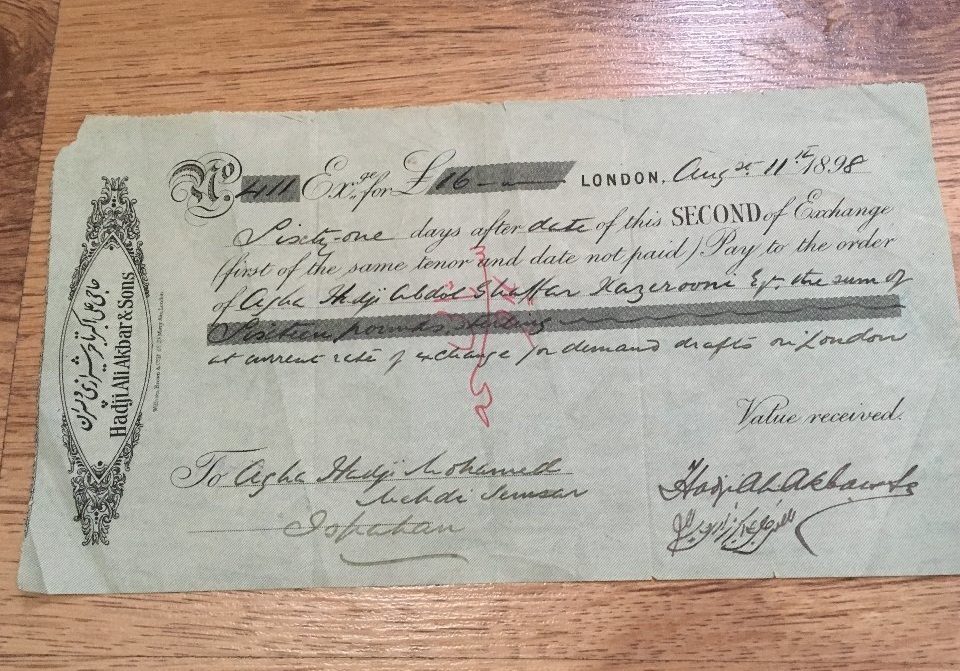 No. 411 Exge. for £16 LONDON, Augst 11th 1898
Sixty-one days after date of this SECOND of Exchange
(first of the same tenor and date not paid) Pay to the order
of Agha Hadji Abdol Ghaffar Kazerooni Eqr. the sum of
Sixteen pounds sterling
at current rate of exchange for demand drafts on London
Value received.
To Agha Hadji Mohamed
Mehdi Semsar
Ispahan
Hadji Ali Akbar & Sons
حاجی علی اکبر تاجر شیرازی و پسران
Hadji Ali Akbar & Sons